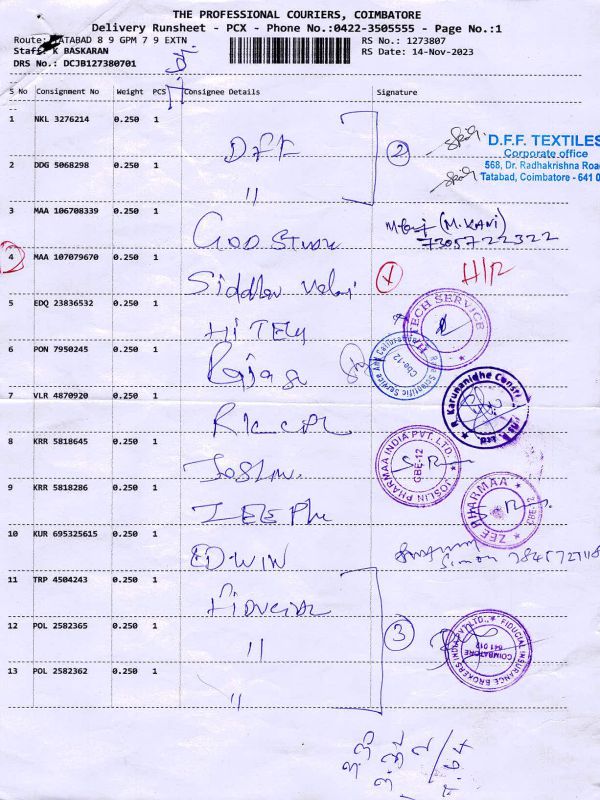 THE PROFESSIONAL COURIERS, COIMBATORE
Delivery Runsheet - PCX - Phone No.:0422-3505555 - Page No.:1
Route: TATABAD 8 9 GPM 7 9 EXTN
RS No.: 1273807
Staff: K BASKARAN
RS Date: 14-Nov-2023
DRS No.: DCJB127380701
S No Consignment No Weight PCS Consignee Details Signature
1 NKL 3276214 0.250 1 DFF 2
D.F.F. TEXTILES
Corporate office
568, Dr. Radhakrishna Road
Tatabad, Coimbatore - 641 0
2 DDG 5068298 0.250 1 "
3 MAA 106708339 0.250 1 (M. KANI)
7305722322
4 MAA 107079670 0.250 1 Siddhu
5 EDQ 23836532 0.250 1 HiTECH
HI TECH SERVICE
6 PON 7950245 0.250 1
Cbe-12
7 VLR 4870920 0.250 1
R Karunanidhe Constr
8 KRR 5818645 0.250 1 Joslin
JOSLIN PHARMAA INDIA PVT. LTD. CBE-12
9 KRR 5818286 0.250 1 ZEE Ph
ZEE PHARMAA CBE-12
10 KUR 695325615 0.250 1 EDWIN
Simon
11 TRP 4504243 0.250 1 Fiducial
12 POL 2582365 0.250 1 " 3
FIDUCIAL INSURANCE BROKERS INDIA PVT LTD., COIMBATORE 641 012
13 POL 2582362 0.250 1 "